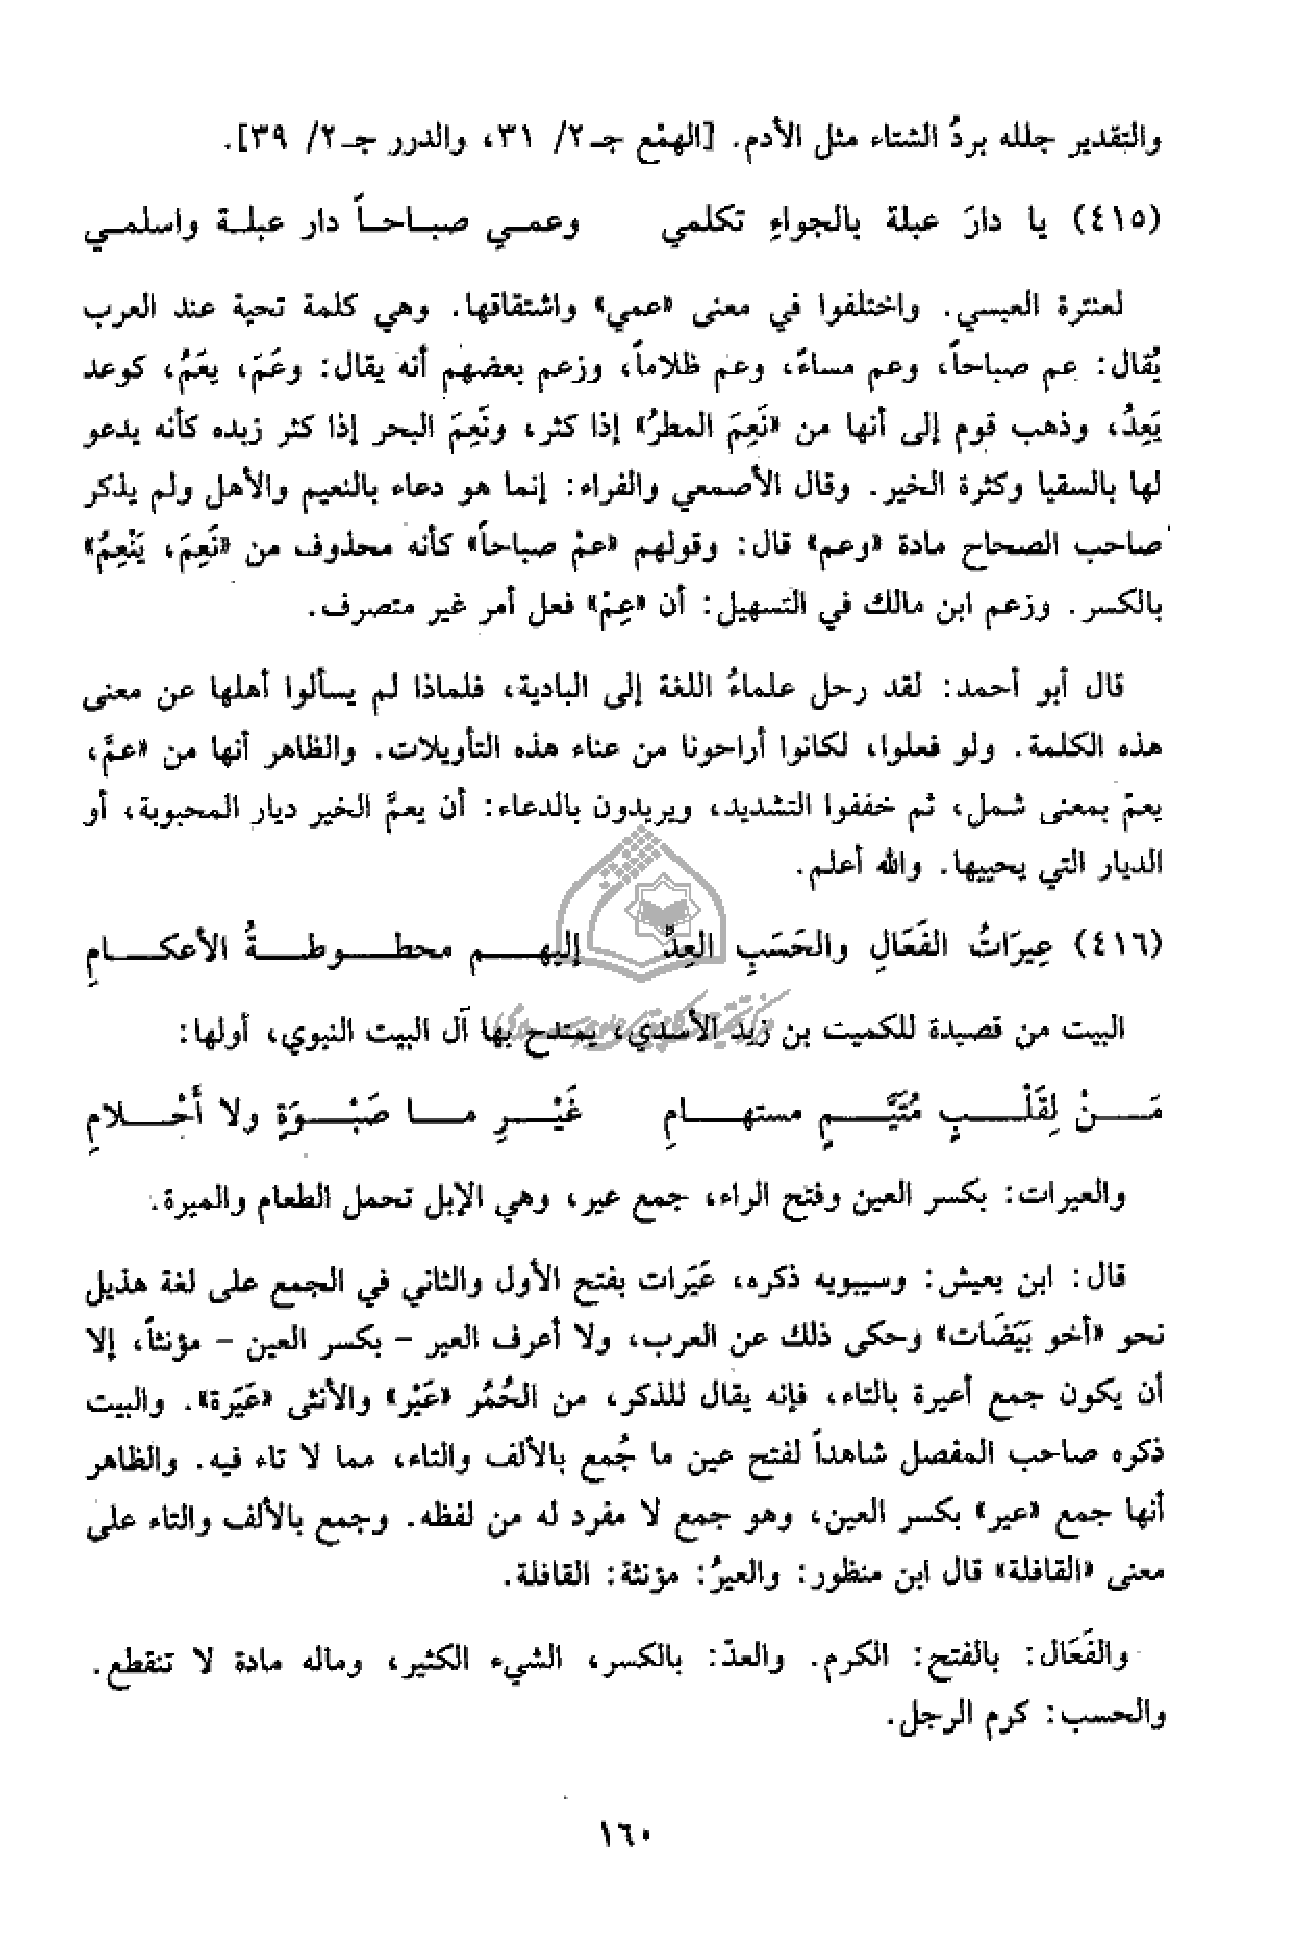 والتقدير جلله بردُ الشتاء مثل الأدم. [الهمْع جـ٢/ ٣١، والدرر جـ٢/ ٣٩].
(٤١٥) يا دارَ عبلة بالجواءِ تكلمي وعمـي صبـاحـاً دار عبلـة واسلمـي
لعنترة العبسي. واختلفوا في معنى «عمي» واشتقاقها. وهي كلمة تحية عند العرب
يُقال: عم صباحاً، وعم مساءً، وعم ظلاماً، وزعم بعضهم أنه يقال: وعَمَ، يعَمُ، كوعد
يَعِدُ، وذهب قوم إلى أنها من «نَعِمَ المطرُ» إذا كثر، ونَعِمَ البحر إذا كثر زبده كأنه يدعو
لها بالسقيا وكثرة الخير. وقال الأصمعي والفراء: إنما هو دعاء بالنعيم والأهل ولم يذكر
صاحب الصحاح مادة «وعم» قال: وقولهم «عمْ صباحاً» كأنه محذوف من «نَعِمَ، يَنْعِمُ»
بالكسر. وزعم ابن مالك في التسهيل: أن «عِمْ» فعل أمر غير متصرف.
قال أبو أحمد: لقد رحل علماءُ اللغة إلى البادية، فلماذا لم يسألوا أهلها عن معنى
هذه الكلمة. ولو فعلوا، لكانوا أراحونا من عناء هذه التأويلات. والظاهر أنها من «عمَّ،
يعمّ بمعنى شمل، ثم خففوا التشديد، ويريدون بالدعاء: أن يعمَّ الخير ديار المحبوبة، أو
الديار التي يحييها. والله أعلم.
(٤١٦) عِيرَاتُ الفَعَالِ والحَسَبِ العِدّْ إليهـــم محطـــوطـــةُ الأعكـــامِ
البيت من قصيدة للكميت بن زيد الأسدي، يمتدح بها آل البيت النبوي، أولها:
مَـــنْ لِقَلْـــبٍ مُتَيَّـــمٍ مستهـــامِ غَيْـــرِ مـــا صَبْـــوَةٍ ولا أَحْـــلامِ
والعيرات: بكسر العين وفتح الراء، جمع عير، وهي الإبل تحمل الطعام والميرة.
قال: ابن يعيش: وسيبويه ذكره، عَيَرات بفتح الأول والثاني في الجمع على لغة هذيل
نحو «أخو بَيَضَات» وحكى ذلك عن العرب، ولا أعرف العير – بكسر العين – مؤنثاً، إلا
أن يكون جمع أعيرة بالتاء، فإنه يقال للذكر، من الحُمُر «عَيْر» والأنثى «عَيَرة». والبيت
ذكره صاحب المفصل شاهداً لفتح عين ما جُمع بالألف والتاء، مما لا تاء فيه. والظاهر
أنها جمع «عير» بكسر العين، وهو جمع لا مفرد له من لفظه. وجمع بالألف والتاء على
معنى «القافلة» قال ابن منظور: والعيرُ: مؤنثة: القافلة.
والفَعَال: بالفتح: الكرم. والعدّ: بالكسر، الشيء الكثير، وماله مادة لا تنقطع.
والحسب: كرم الرجل.
١٦٠